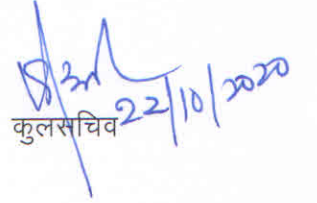 कुलसचिव 22/10/2020